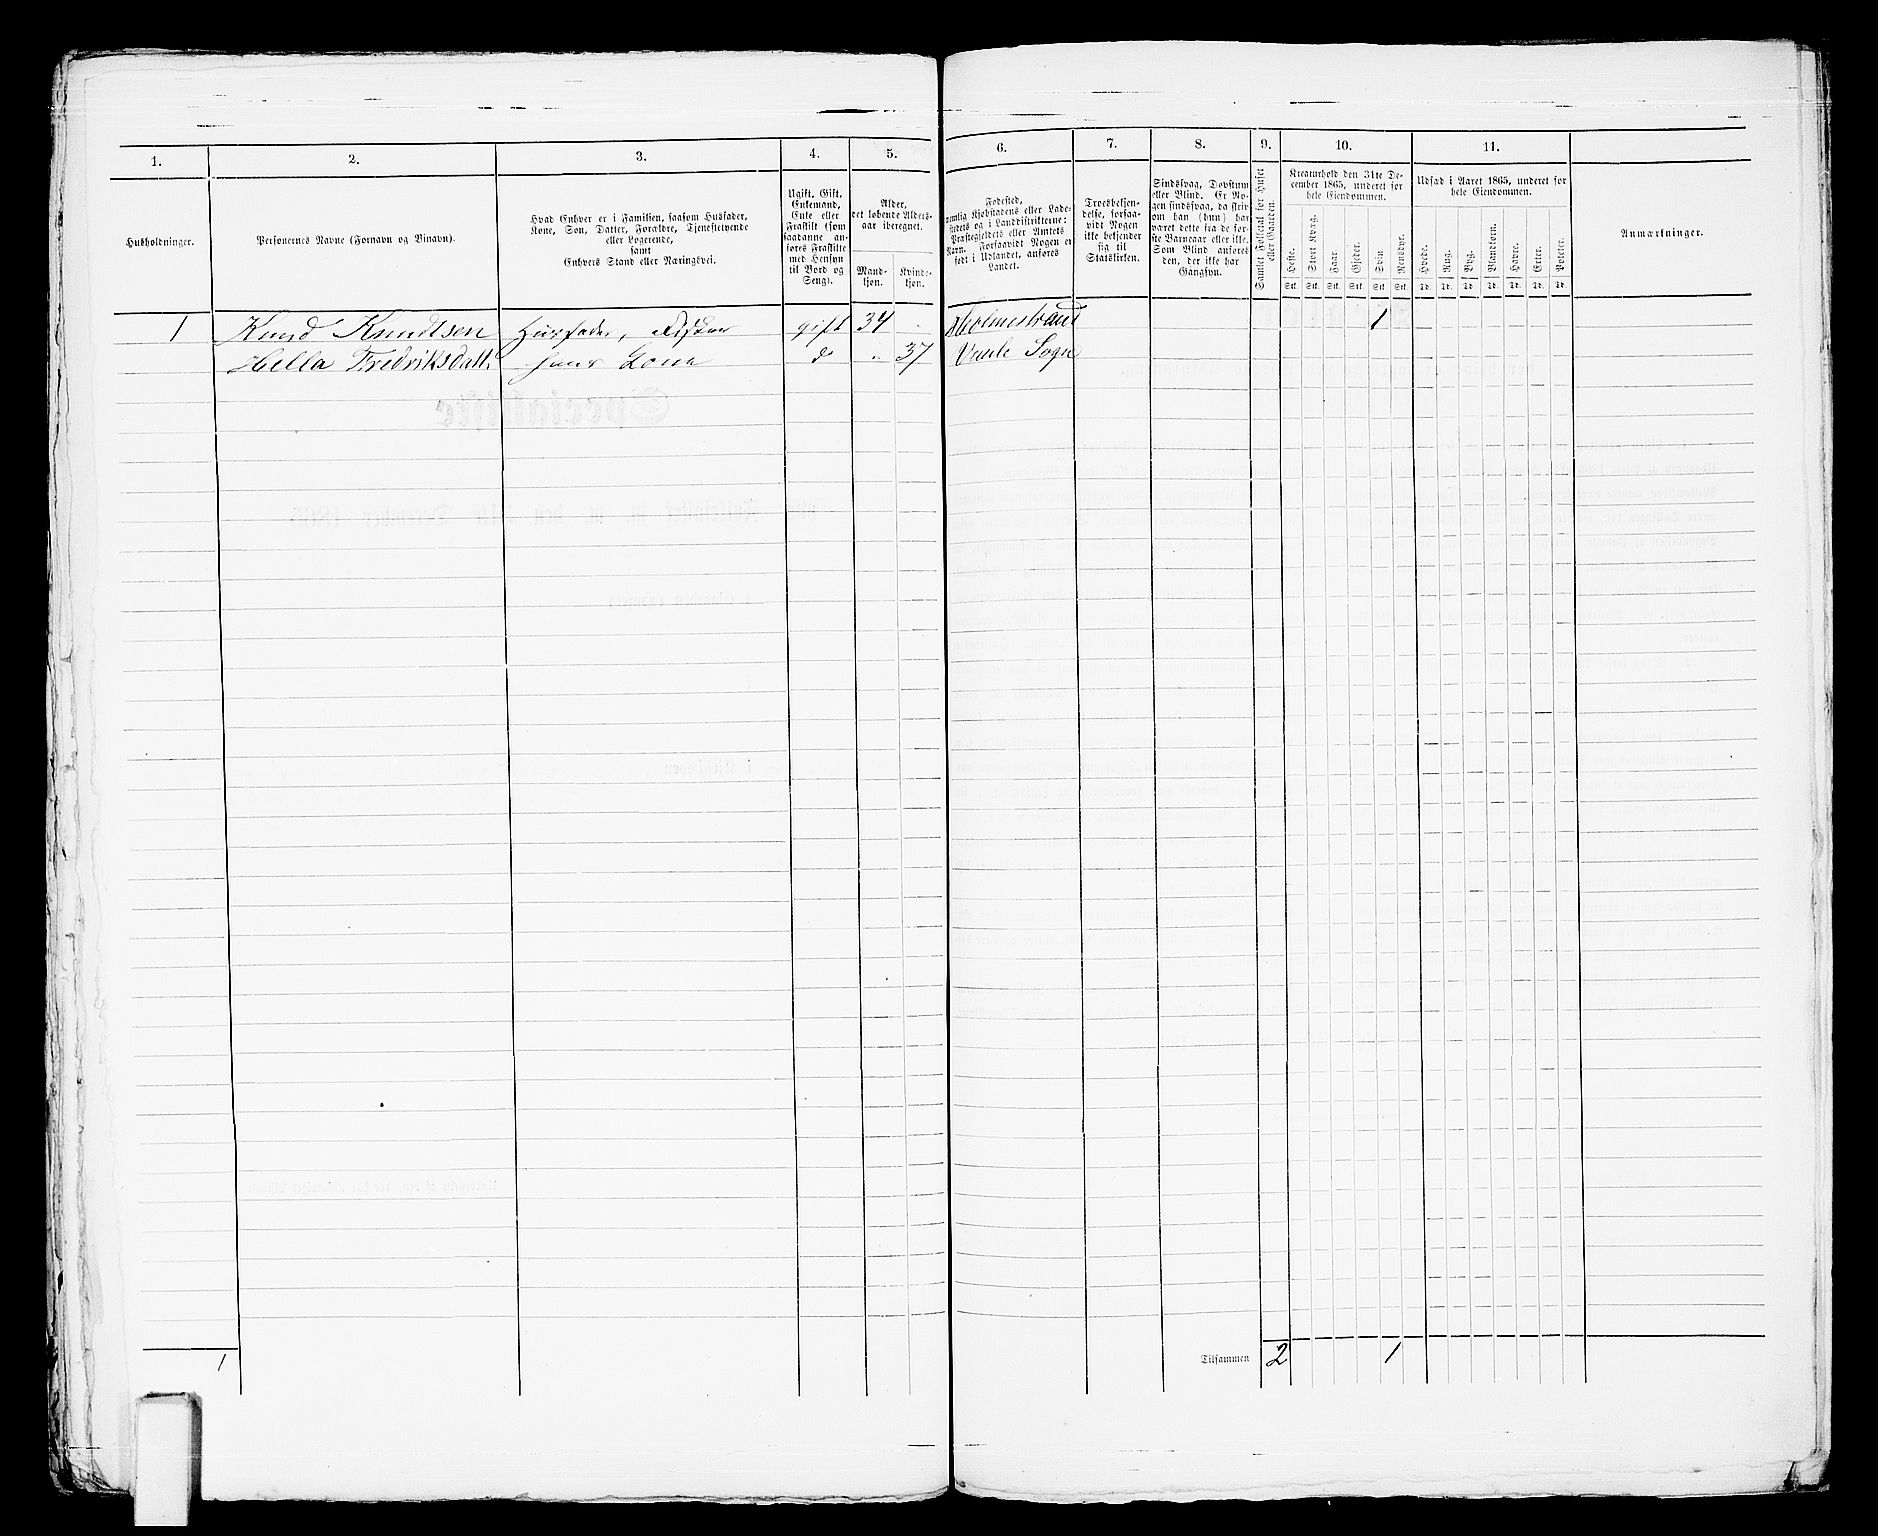 1. 2. 3. 4. 5. 6. 7. 8. 9. 10. 11.
Husholdninger.
Personernes Navne (Fornavn og Binavn).
Hvad Enhver er i Familien, saasom Husfader,
Kone, Søn, Datter, Forældre, Tjenestetyende
eller Logerende,
samt
Enhvers Stand eller Næringsvei.
Ugift, Gift,
Enkemand,
Enke eller
Fraskilt (som
saadanne an-
føres Fraskilte
med Hensyn
til Bord og
Seng).
Alder,
det løbende Alders-
aar iberegnet.
Mand-
kjøn.
Kvinde-
kjøn.
Fødested,
nemlig Kjøbstadens eller Lade-
stedets og i Landdistrikterne:
Præstegjeldets eller Amtets
Navn. Forsaavidt Nogen er
født i Udlandet, anføres
Landet.
Troesbekjen-
delse, forsaa-
vidt Nogen
ikke bekjender
sig til
Statskirken.
Sindssvag, Døvstum
eller Blind. Er No-
gen sindssvag, da skriv
om han (hun) har
været dette fra de før-
ste Barneaar eller ikke.
Som Blind anføres
den, der ikke har
Gangsyn.
Samlet Folketal for Huset
eller Gaarden.
Kreaturhold den 31te De-
cember 1865, underet for
hele Eiendommen.
Heste.
Stort Kvæg.
Faar
Gjeder.
Svin
Rensdyr.
Stk. Stk. Stk. Stk. Stk. Stk.
Udsæd i Aaret 1865, underet for
hele Eiendommen.
Hvede.
Rug.
Byg.
Blandkorn.
Havre.
Erter.
Poteter.
Td. Td. Td. Td. Td. Td. Td.
Anmærkninger.
1 Knud Knudtsen Husfader, Fisker gift 34 Holmestrand 1
Hella Fredriksdatt. hans Kone d „ 37 Sogn
1 Tilsammen 2 1